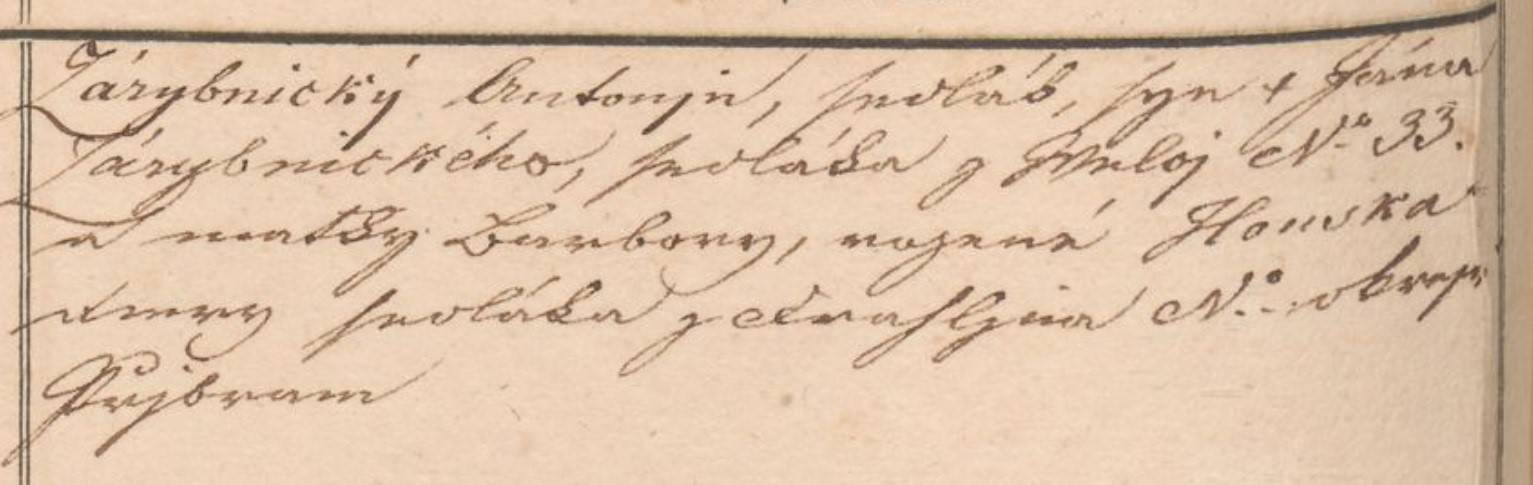 Zárybnický Antonjn, sedlák, syn † Jána
Zárybnického, sedláka z Meloj No 33.
a matky Barbory, rozené Houska
dcery sedláka z Drahljna No. okres
Přjbram